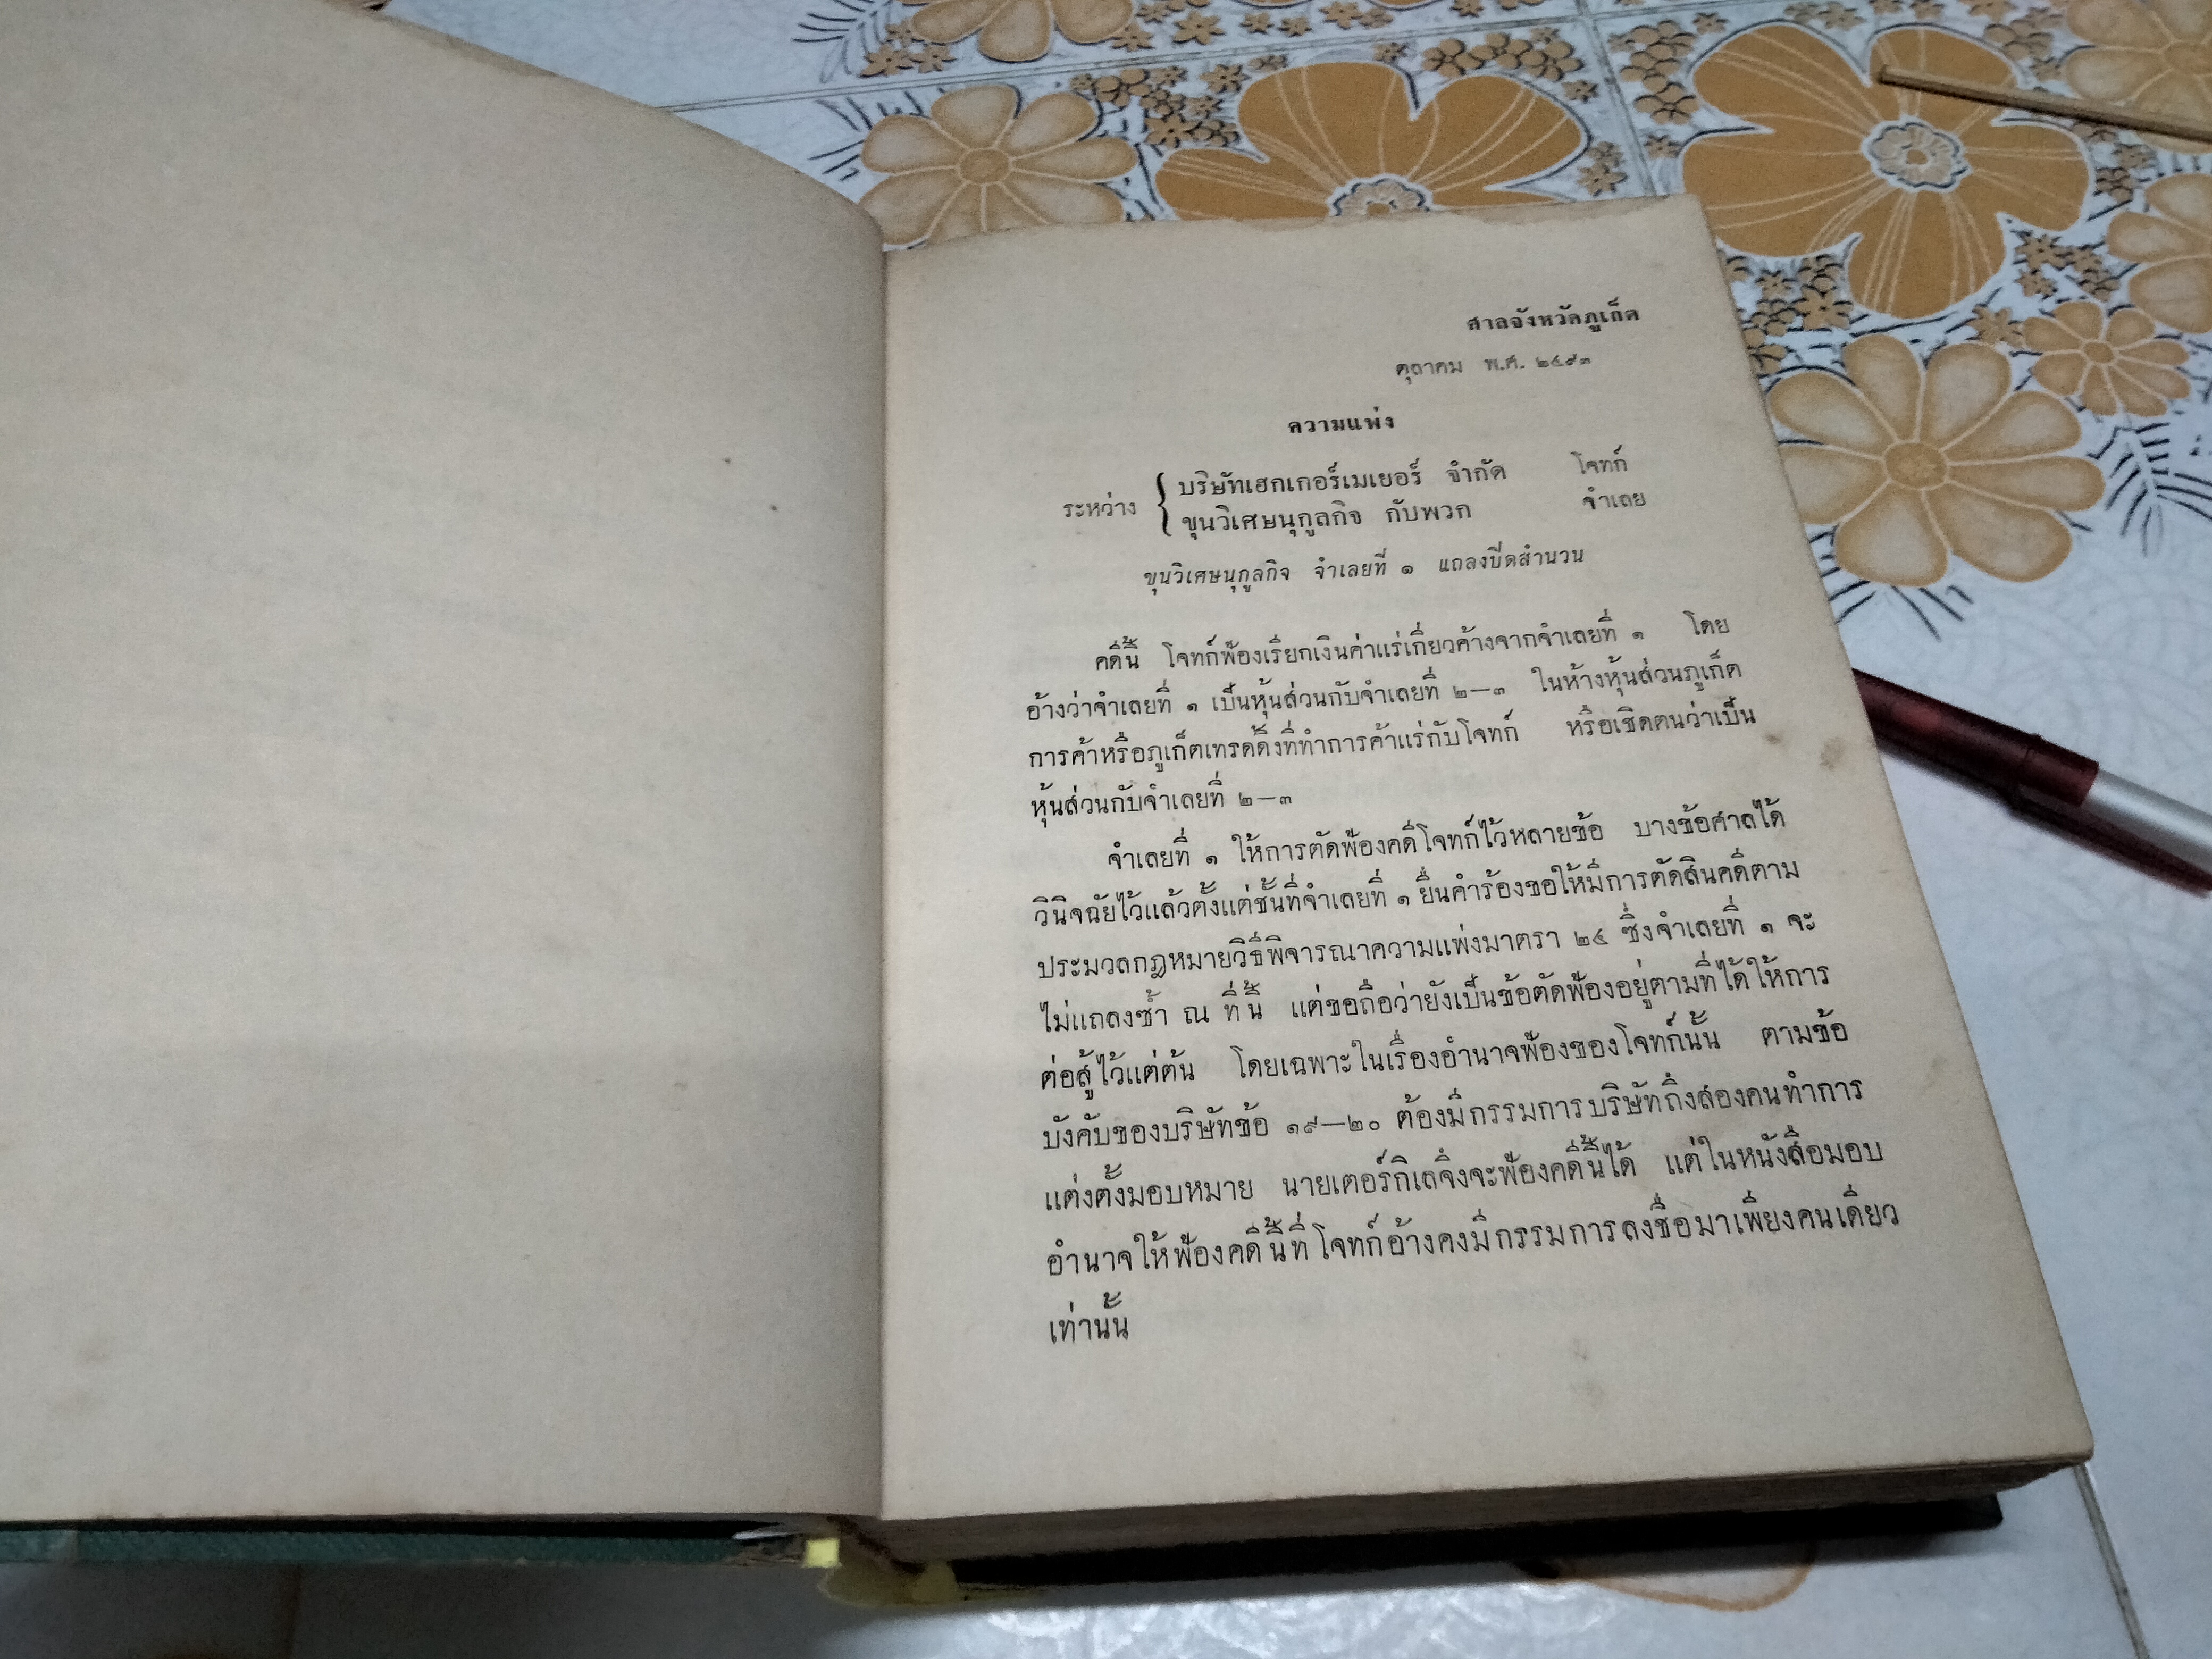 ศาลจังหวัดภูเก็ต
ตุลาคม พ.ศ. ๒๔๙๓
ความแพ่ง
ระหว่าง { บริษัทเฮกเกอร์เมเยอร์ จำกัด โจทก์
ขุนวิเศษนุกูลกิจ กับพวก จำเลย
ขุนวิเศษนุกูลกิจ จำเลยที่ ๑ แถลงปิดสำนวน
คดีนี้ โจทก์ฟ้องเรียกเงินค่าแร่เกี่ยวค้างจากจำเลยที่ ๑ โดย
อ้างว่าจำเลยที่ ๑ เป็นหุ้นส่วนกับจำเลยที่ ๒—๓ ในห้างหุ้นส่วนภูเก็ต
การค้าหรือภูเก็ตเทรดดิ้งที่ทำการค้าแร่กับโจทก์ หรือเชิดตนว่าเป็น
หุ้นส่วนกับจำเลยที่ ๒—๓
จำเลยที่ ๑ ให้การตัดฟ้องคดีโจทก์ไว้หลายข้อ บางข้อศาลได้
วินิจฉัยไว้แล้วตั้งแต่ชั้นที่จำเลยที่ ๑ ยื่นคำร้องขอให้มีการตัดสินคดีตาม
ประมวลกฎหมายวิธีพิจารณาความแพ่งมาตรา ๒๔ ซึ่งจำเลยที่ ๑ จะ
ไม่แถลงซ้ำ ณ ที่นี้ แต่ขอถือว่ายังเป็นข้อตัดฟ้องอยู่ตามที่ได้ให้การ
ต่อสู้ไว้แต่ต้น โดยเฉพาะในเรื่องอำนาจฟ้องของโจทก์นั้น ตามข้อ
บังคับของบริษัทข้อ ๑๙—๒๐ ต้องมีกรรมการบริษัทถึงสองคนทำการ
แต่งตั้งมอบหมาย นายเตอร์กิเลจึงจะฟ้องคดีนี้ได้ แต่ในหนังสือมอบ
อำนาจให้ฟ้องคดีนี้ที่โจทก์อ้างคงมีกรรมการลงชื่อมาเพียงคนเดียว
เท่านั้น